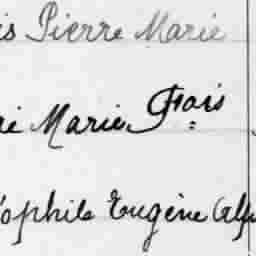 is Pierre Marie
ré Marie Fçois
éophile Eugène Alp